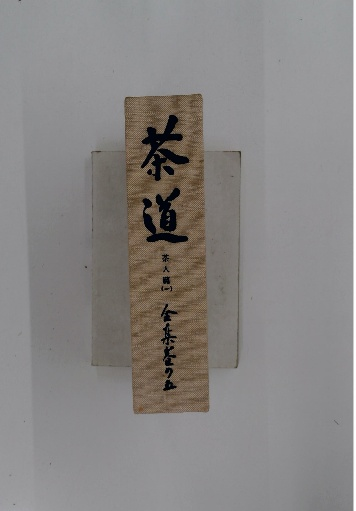 茶道
茶人編(一)
全集巻の五